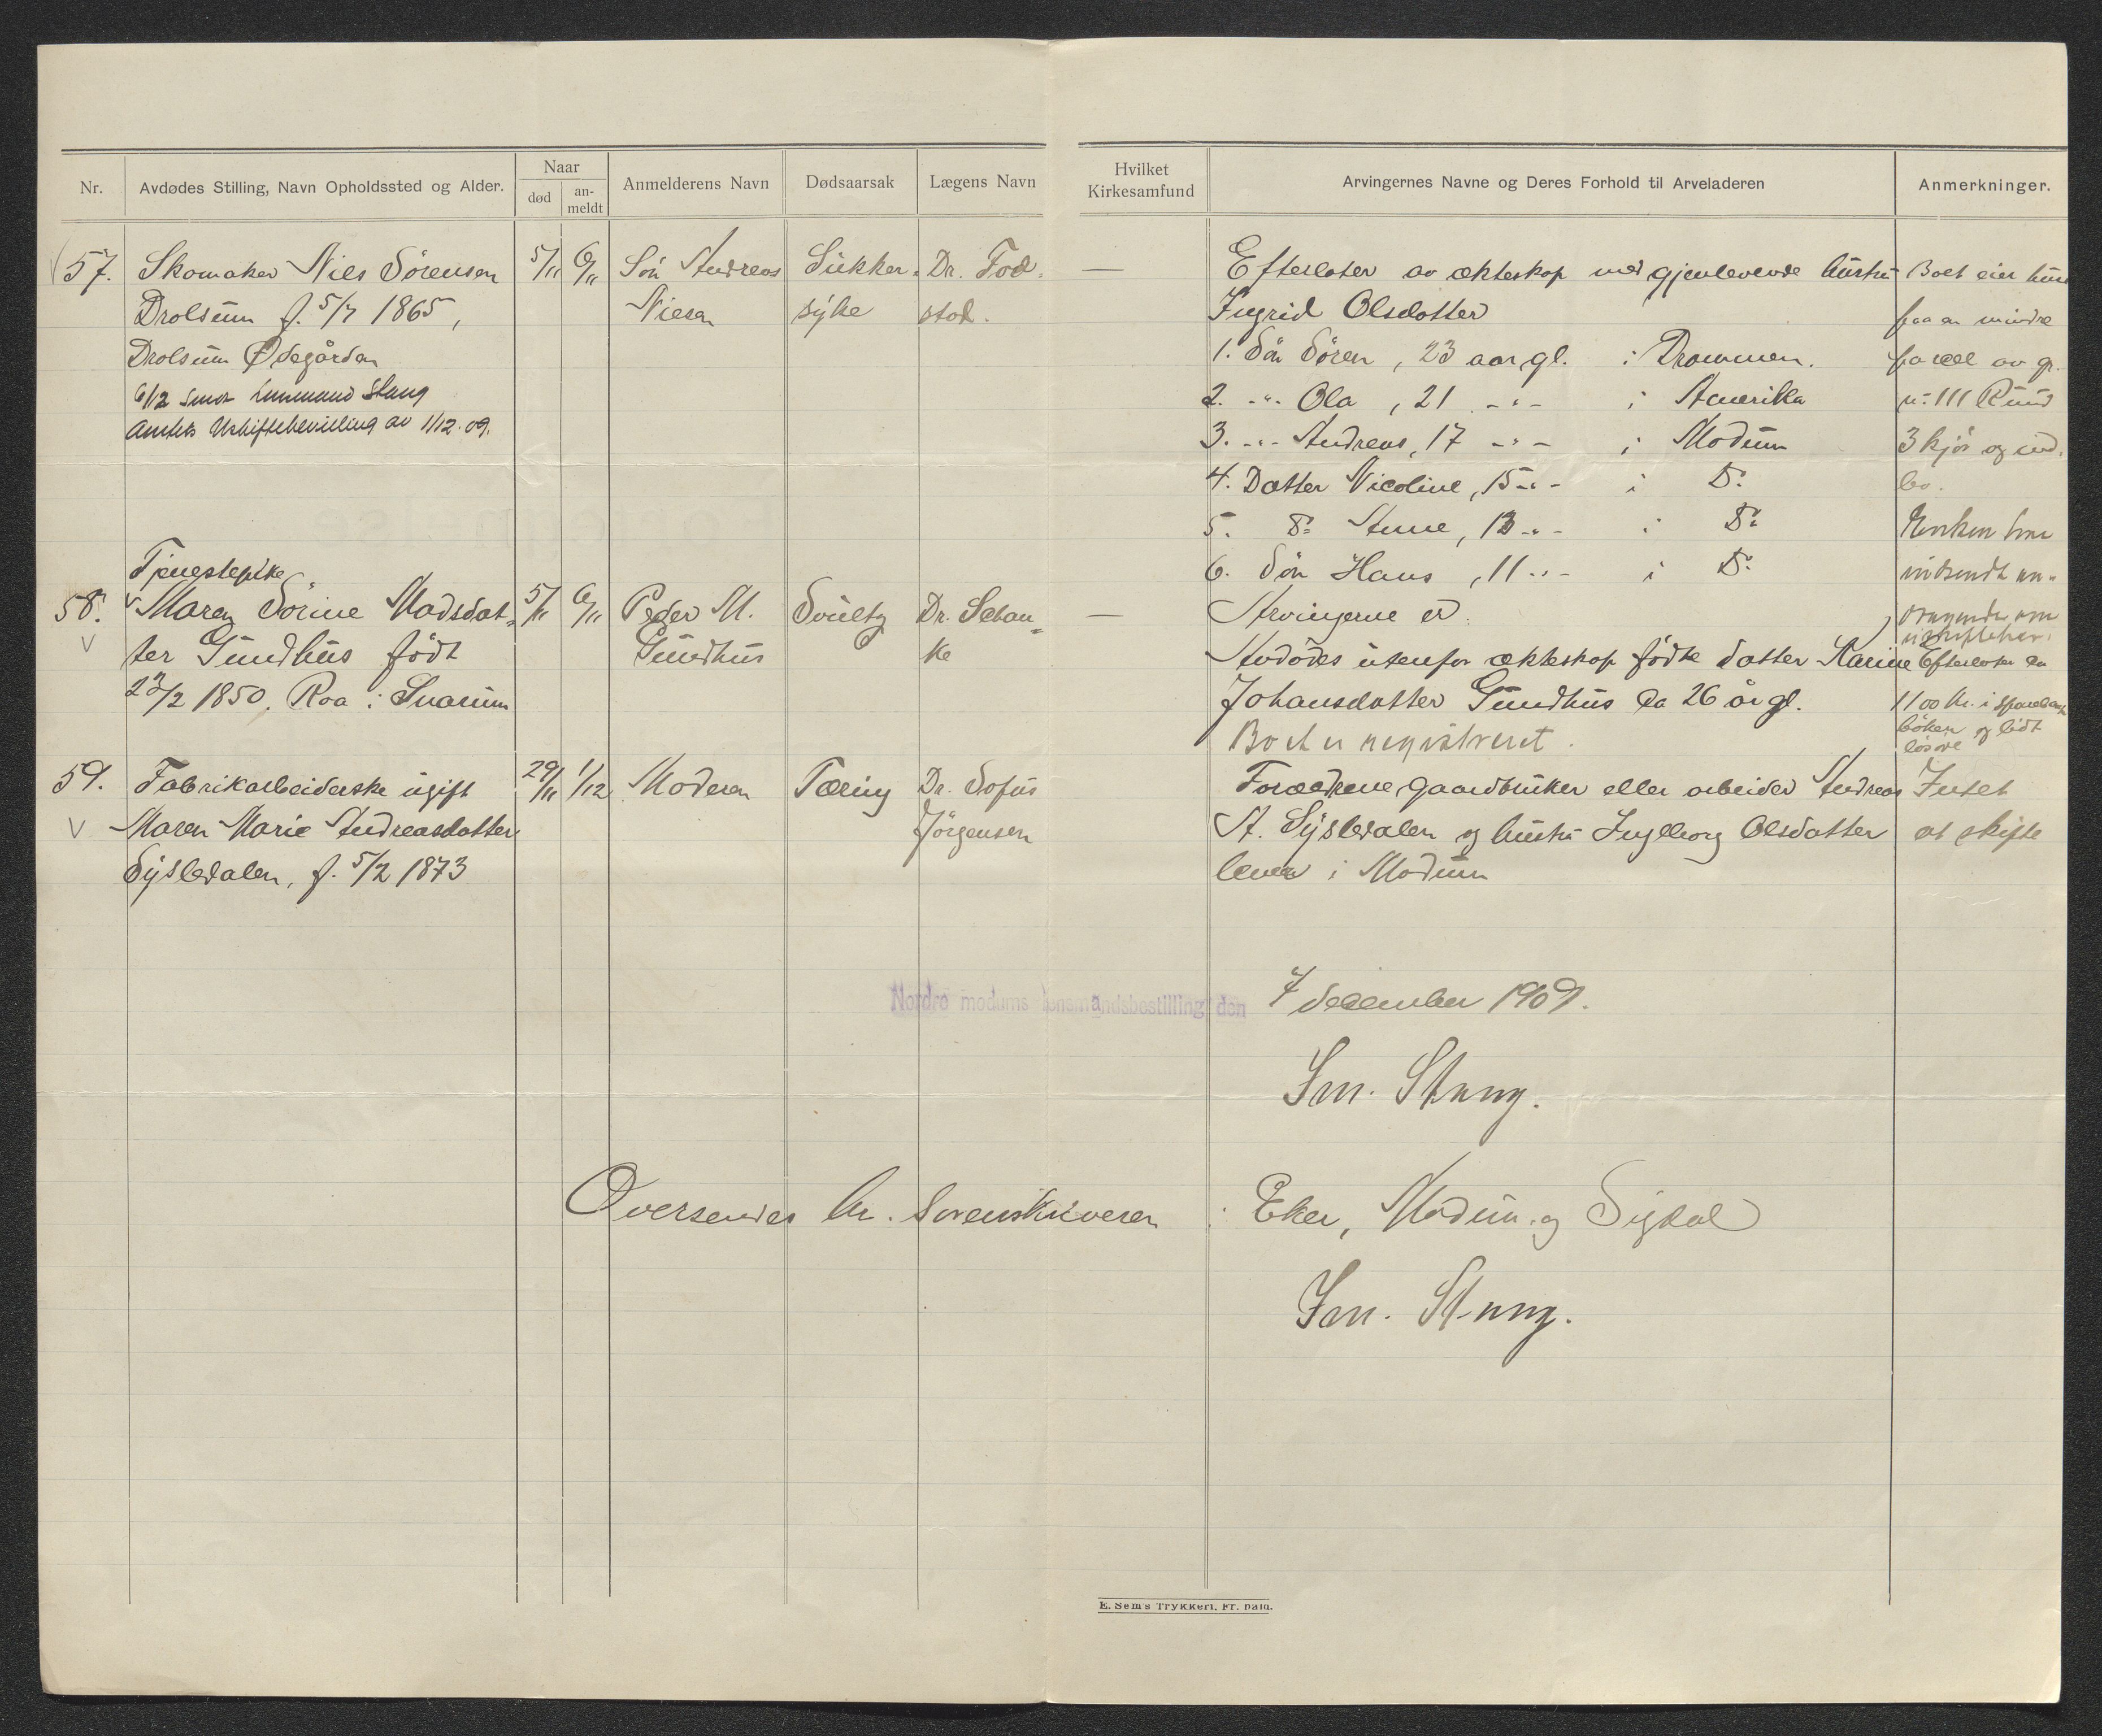 Nr.
Avdødes Stilling, Navn Opholdssted og Alder.
Naar
død
an-
meldt
Anmelderens Navn
Dødsaarsak
Lægens Navn
Hvilket
Kirkesamfund
Arvingernes Navne og Deres Forhold til Arveladeren
Anmerkninger.
57. Skomaker Niels Sörensen
Drolsum f. 5/7 1865,
Drolsum Ødegården
6/12 lensmand Stang
Amtets Uskiftebevilling av 1/12.09.
5/11
6/11
Sön Andreas
Nilsen
Sukker-
syke
Dr. Fod-
stad.
—
Efterlater av ekteskap med gjenlevende hustru
Ingrid Olsdatter
1. Sön Sören, 23 aar gl. i Drammen.
2. -"- Ola, 21 -"- i Amerika
3. -"- Andreas, 17 -"- i Modum
4. Datter Nicoline, 15 -"- i Do
5. Do Anne, 13 -"- i Do
6. Sön Hans, 11 -"- i Do
Boet eier hus
paa en mindre
parcel av gr.
n. 111 Rud
3 kjör og ind-
bo.
Enken har
indsendt an-
dragende om
uskiftebev.
Tjenestepike
58. Maren Sörine Madsdat-
ter Gundhus född
23/2 1850. Roa i Snarum
5/11
6/11
Peder M.
Gundhus
Svulst
Dr. Schan-
ke
—
Arvingerne er:
Avdödes utenfor ekteskap födte datter Karine
Johansdatter Gundhus ca 26 år gl.
Boet er registreret.
Efterlater ca
1100 Kr. i sparebank
böker og lidt
lösöre
59. Fabrikarbeiderske ugift
Maren Marie Andreasdatter
Sysledalen, f. 5/2 1873
29/11
1/12
Moderen
Tæring
Dr. Sofus
Jörgensen
Forældrene, gaardbruker eller arbeider Andreas
A. Sysledalen og hustru Ingeborg Olsdatter
lever i Modum
Intet
at skifte
Nordre modums lensmandsbestilling den 7 december 1909.
Im. Stang.
Oversendes hr. Sorenskriveren i Eker, Modum og Sigdal
Im. Stang.
E. Sem's Trykkeri, Fr. hald.